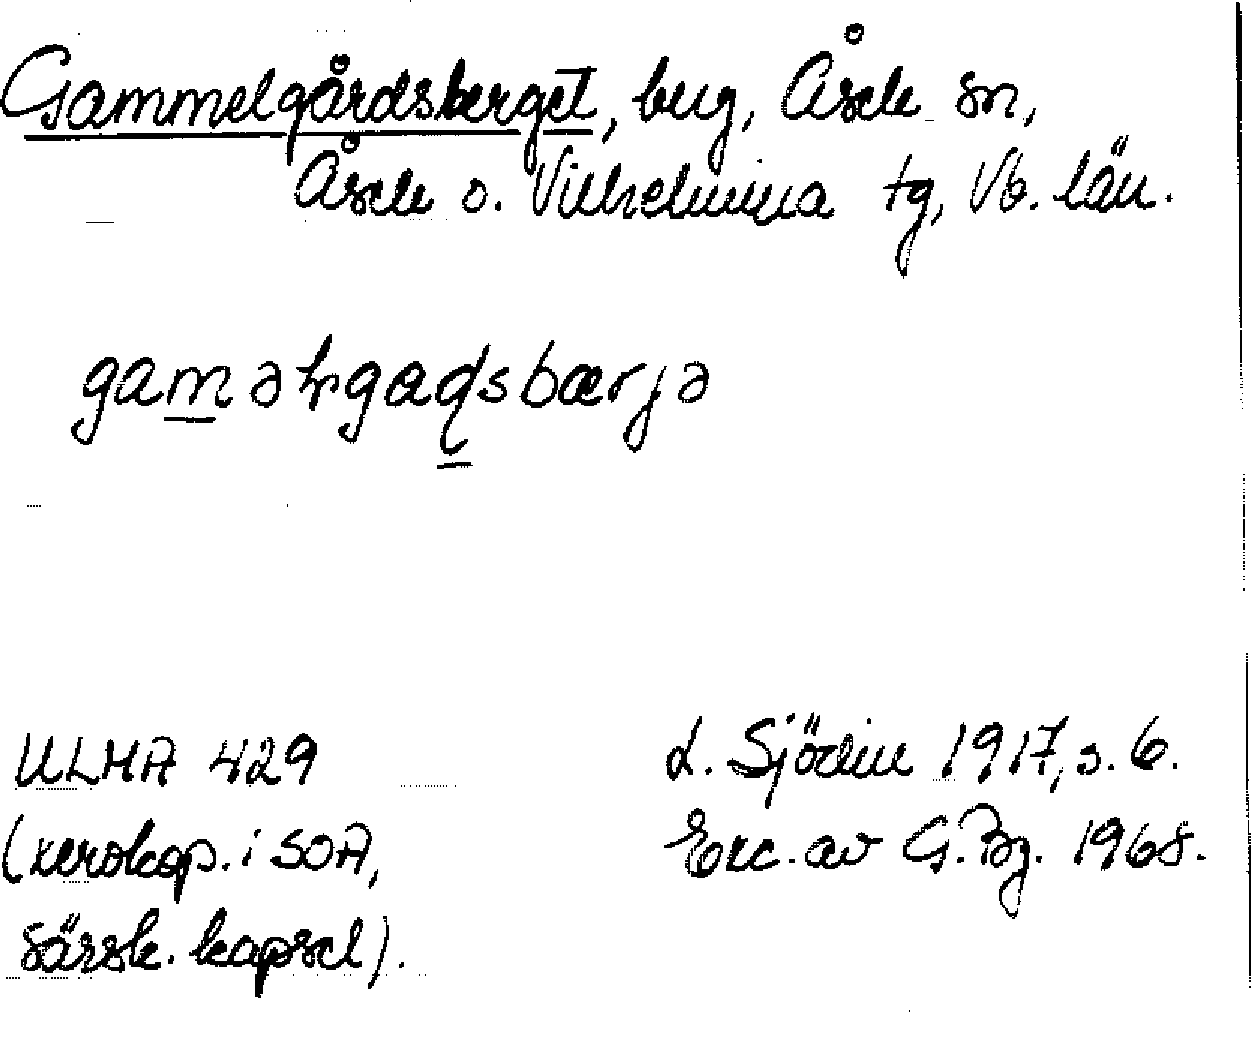 Gammelgårdsberget, berg, Åsele sn,
Åsele o. Vilhelmina tg, Vb. län.
gaməlgaɖsbærjə
ULMA 429
(xerokop. i SOA,
särsk. kapsel).
L. Sjödin 1917, s. 6.
Exc. av G. Bg. 1968.